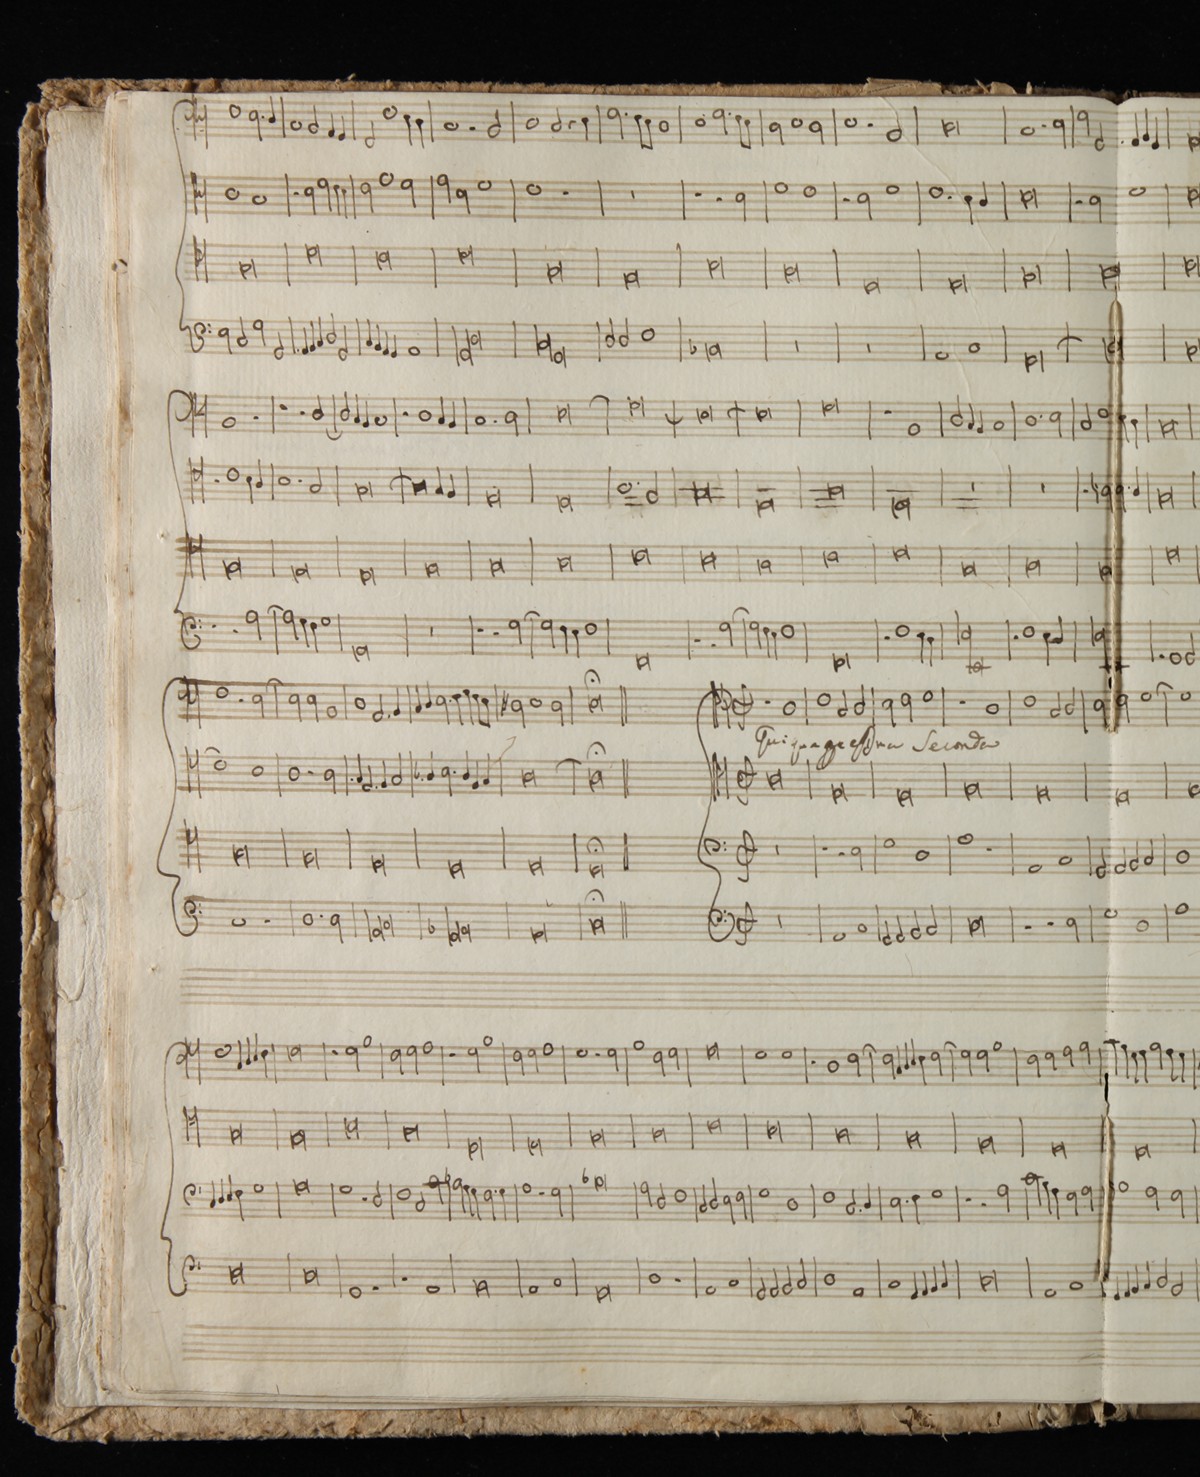 Quinquagesima Seconda